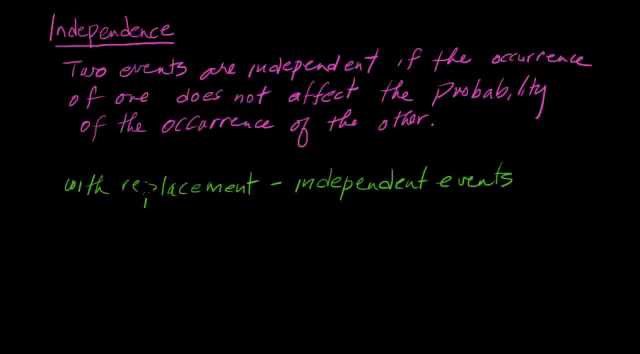 Independence
Two events are independent if the occurrence
of one does not affect the Probability
of the occurrence of the other.
with replacement - independent events